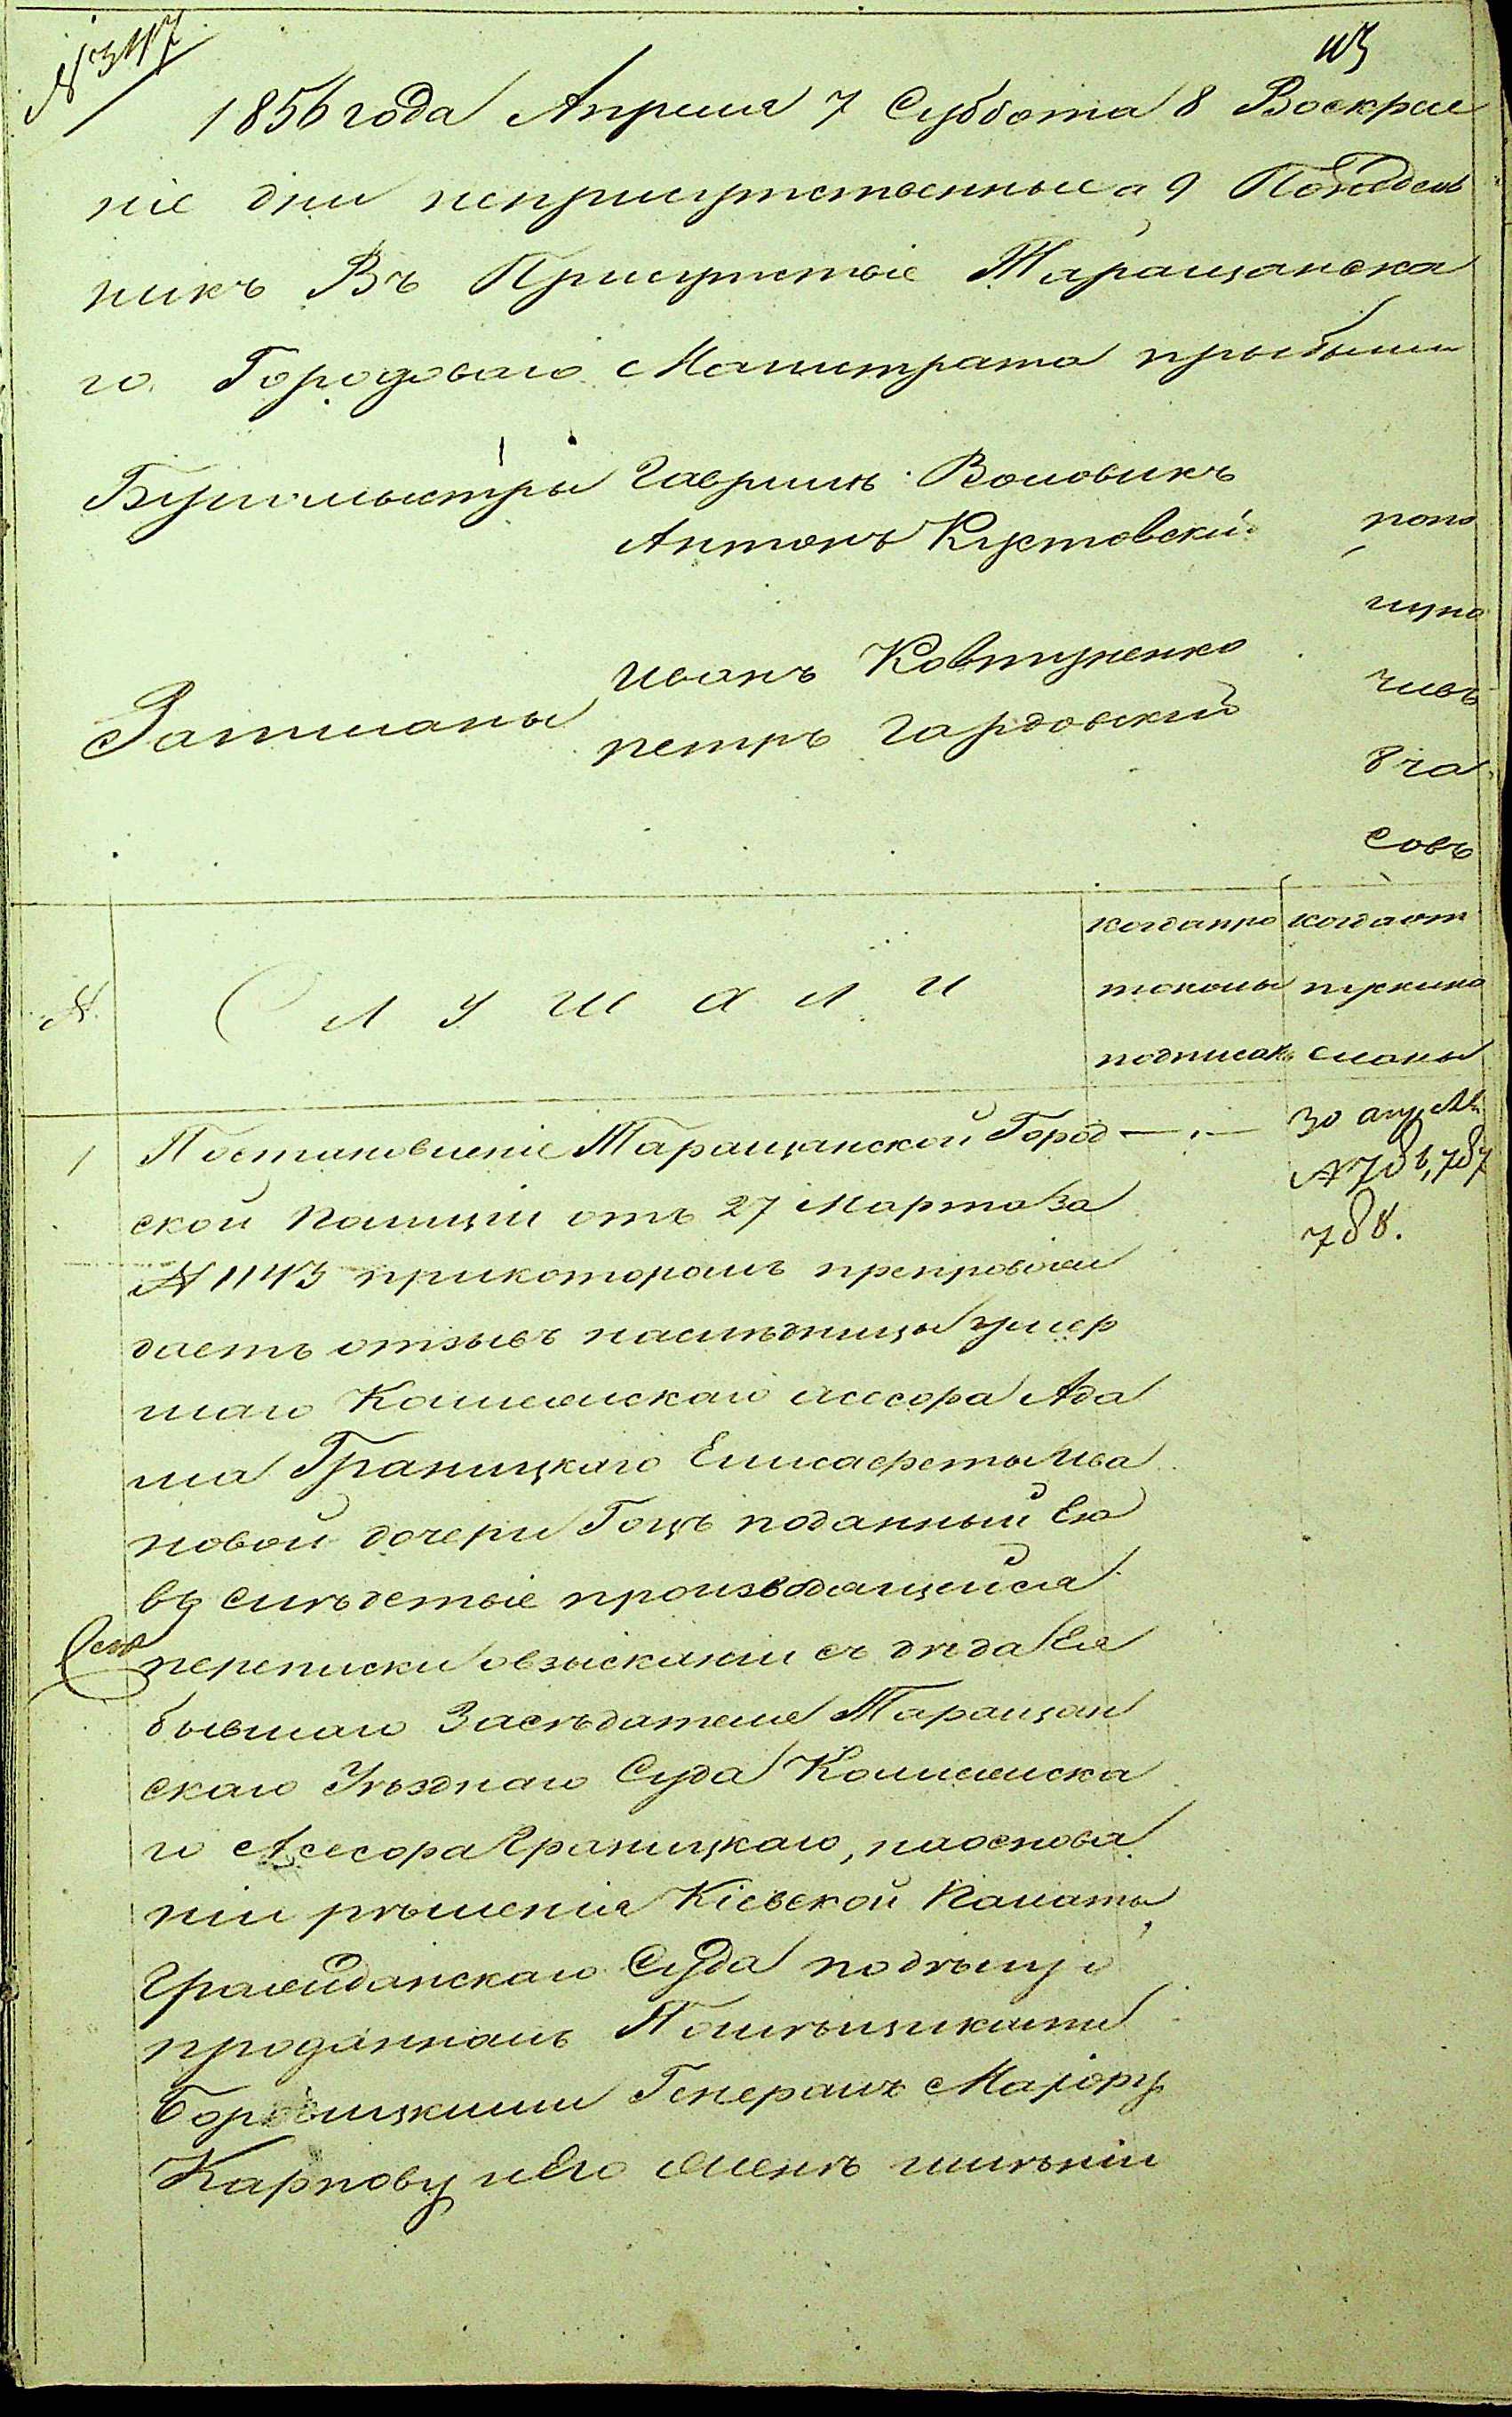 № 347
113
1856 года Апреля 7 Суббота 8 Воскресе
ніе дни неприсутственные а 9 Понедель
никъ Въ Присутствіе Таращанска
го Городоваго Магистрата прибыли
Бургомыстры Гаврилъ Воловикъ
Антонъ Кустовскій
попо
луно
Ратманы Иванъ Ковтуненко
петръ Гардовскій
чивъ
8 ча
совъ
№ Слушали
когда про
токолы
подписаны
когда от
пускипо
сланы
1 Постановленіе Таращанской Город
30 апреля
ской Полиціи отъ 27 Марта За
№ 786, 787
788.
№ 1143 прикоторомъ препровож
даетъ отзывъ наследницы умер
шаго Колежскаго асесора Ада
ма Границкаго Елисаветы Ива
новой дочери Гоцъ поданный Ею
въ следствіе производящейся
переписки овзысканіи съ деда Ея
бывшаго Заседателя Таращан
скаго Уезднаго Суда Колежска
го Асесора Границкаго, наоснова
ніи решенія Кіевской Палаты
Гражданскаго Суда поделу о
проданномъ Помещиками
Генералъ Маіору
Карпову и Его жене именіи